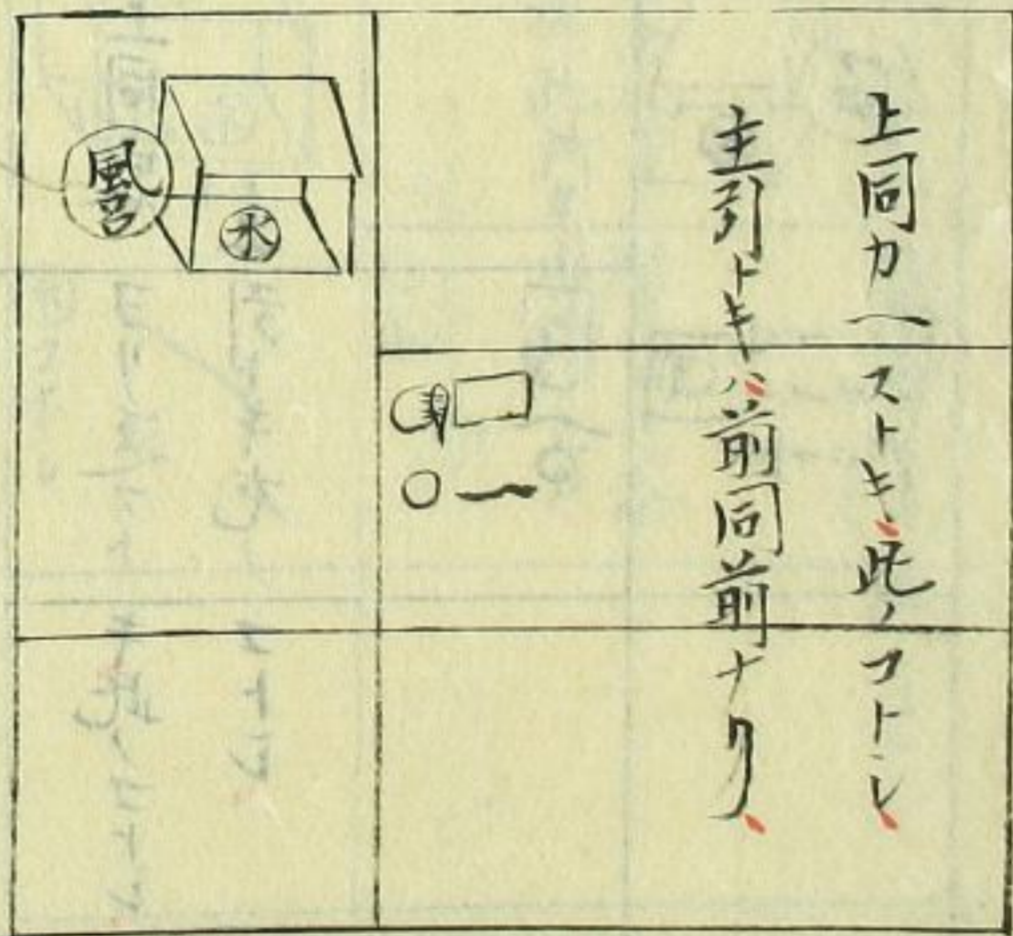 上同カヘストキ、此ノコトシ、
主引トキハ、前同前ナク、
風呂
水